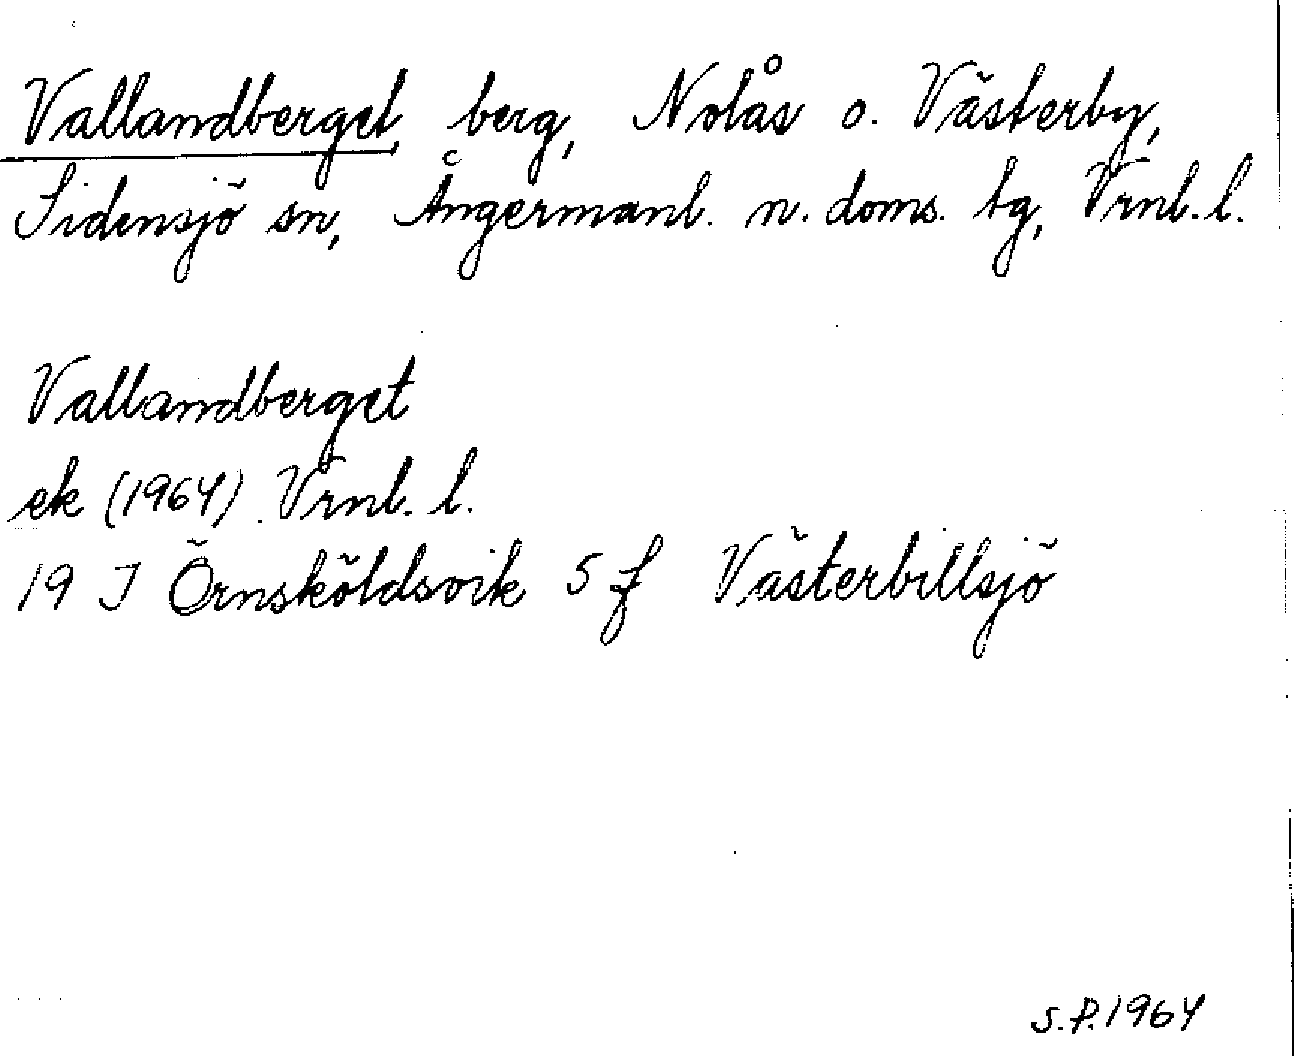 Vallandberget, berg, Nolås o. Västerby,
Sidensjö sn, Ångermanl. n. doms. tg, Vrnl. l.
Vallandberget
ek (1964) Vrnl. l.
19 J Örnsköldsvik 5 f Västerbillsjö
S.P. 1964